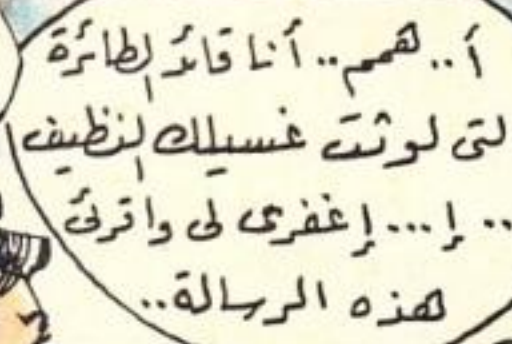 أ.. همم.. أنا قائد الطائرة
لتى لوثت غسيلك النظيف
.. إ... إغفرى لى واقرئى
هذه الرسالة..